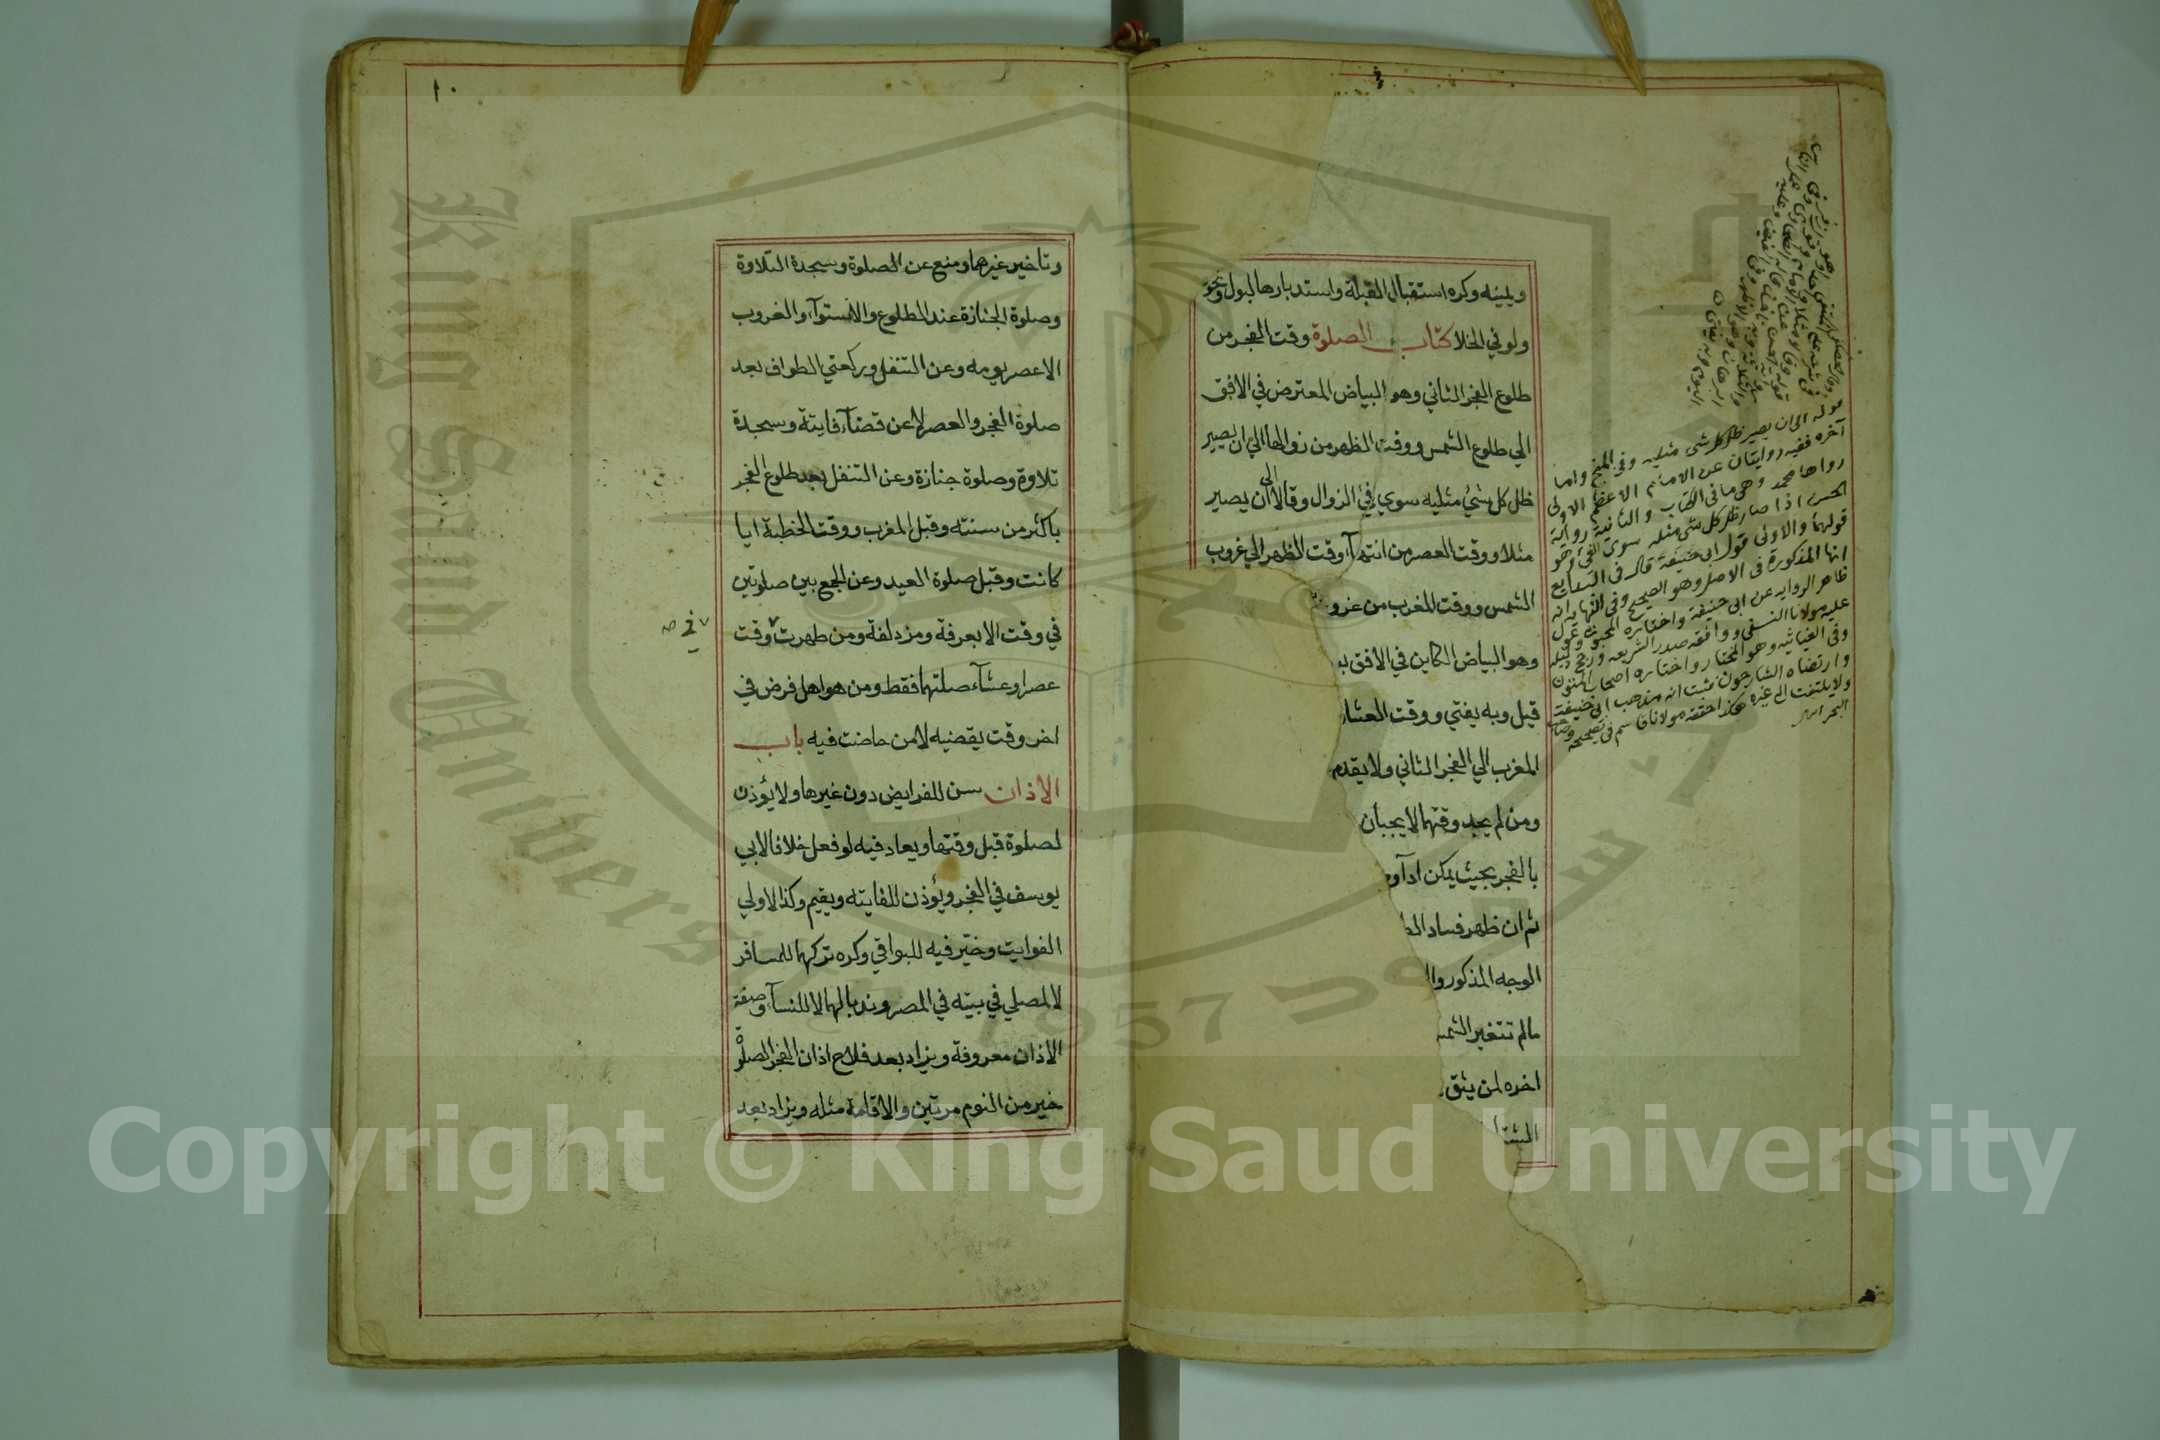 ويمينه وكره استقبال القبلة واستدبارها لبول ونحوه
ولو في الخلا كتاب الصلوة وقت الفجر من
طلوع الفجر الثاني وهو البياض المعترض في الافق
الي طلوع الشمس ووقت الظهر من زوالها الي ان يصير
ظل كل شئ مثليه سوي فئ الزوال وقالا الى ان يصير
مثلا ووقت العصر من انتهآء وقت الظهر الي غروب
الشمس ووقت المغرب من غرو
وهو البياض الكاين في الافق ب
قيل وبه يفتي ووقت العشا
المغرب الي الفجر الثاني ولا يقدم
ومن لم يجد وقتهما لا يجبان
بالفجر بحيث يمكن ادآو
ثم ان ظهر فساد الط
الوجه المذكور وال
مالم تتغير الشم
اخره لمن يثق
الشتا
قوله الى ان يصير ظل كل شى مثليه وفى المنح واما
آخره ففيه روايتان عن الامام الاعظم الاولى
رواها محمد وهى ما فى الكتاب والثانية رواية
الحسن اذا صار ظل كل شى مثله سوى الفى وهو
قولهما والاولى قول ابى حنيفة قال فى البدايع
انها المذكورة فى الاصل وهو الصحيح وفى النهايه انه
ظاهر الروايه عن ابى حنيفة واختاره المحبوبى وعول
عليه مولانا النسفى ووافقه صدر الشريعه ورجح دليله
وفى الغياثيه وهو المختار واختاره اصحاب المتون
وارتضاه الشارحون فثبت انه مذهب ابى حنيفة
ولا يلتفت الى غيره هكذا حققه مولانا قاسم فى تصحيحه وصاحب
البحر
١٠
وتاخير غيرهما ومنع عن الصلوة وسجدة التلاوة
وصلوة الجنازة عند الطلوع والاستوآء والغروب
الا عصر يومه وعن التنفل وركعتي الطواف بعد
صلوة الفجر والعصر لا عن قضآء فايتة وسجدة
تلاوة وصلوة جنازة وعن التنفل بعد طلوع الفجر
باكثر من سنته وقبل المغرب ووقت الخطبة ايا
كانت وقبل صلوة العيد وعن الجمع بين صلوتين
في وقت الا بعرفة ومزدلفة ومن طهرت وقت
في صح
عصر او عشآء صلتهما فقط ومن هو اهل فرض في
اخر وقت يقضيه لا من حاضت فيه باب
الاذان سن للفرايض دون غيرها ولا يؤذن
لصلوة قبل وقتها ويعاد فيه لو فعل خلافا لابي
يوسف في الفجر ويؤذن للفايته ويقيم وكذا لاولي
الفوايت وخيّر فيه للبواقي وكره تركهما للمسافر
لا لمصلي في بيته في المصر وندبا لهما لا للنسآء وصفة
الاذان معروفة ويزاد بعد فلاح اذان الفجر الصلوة
خير من النوم مرتين والاقامة مثله ويزاد بعد
King Saud University
1957
Copyright © King Saud University